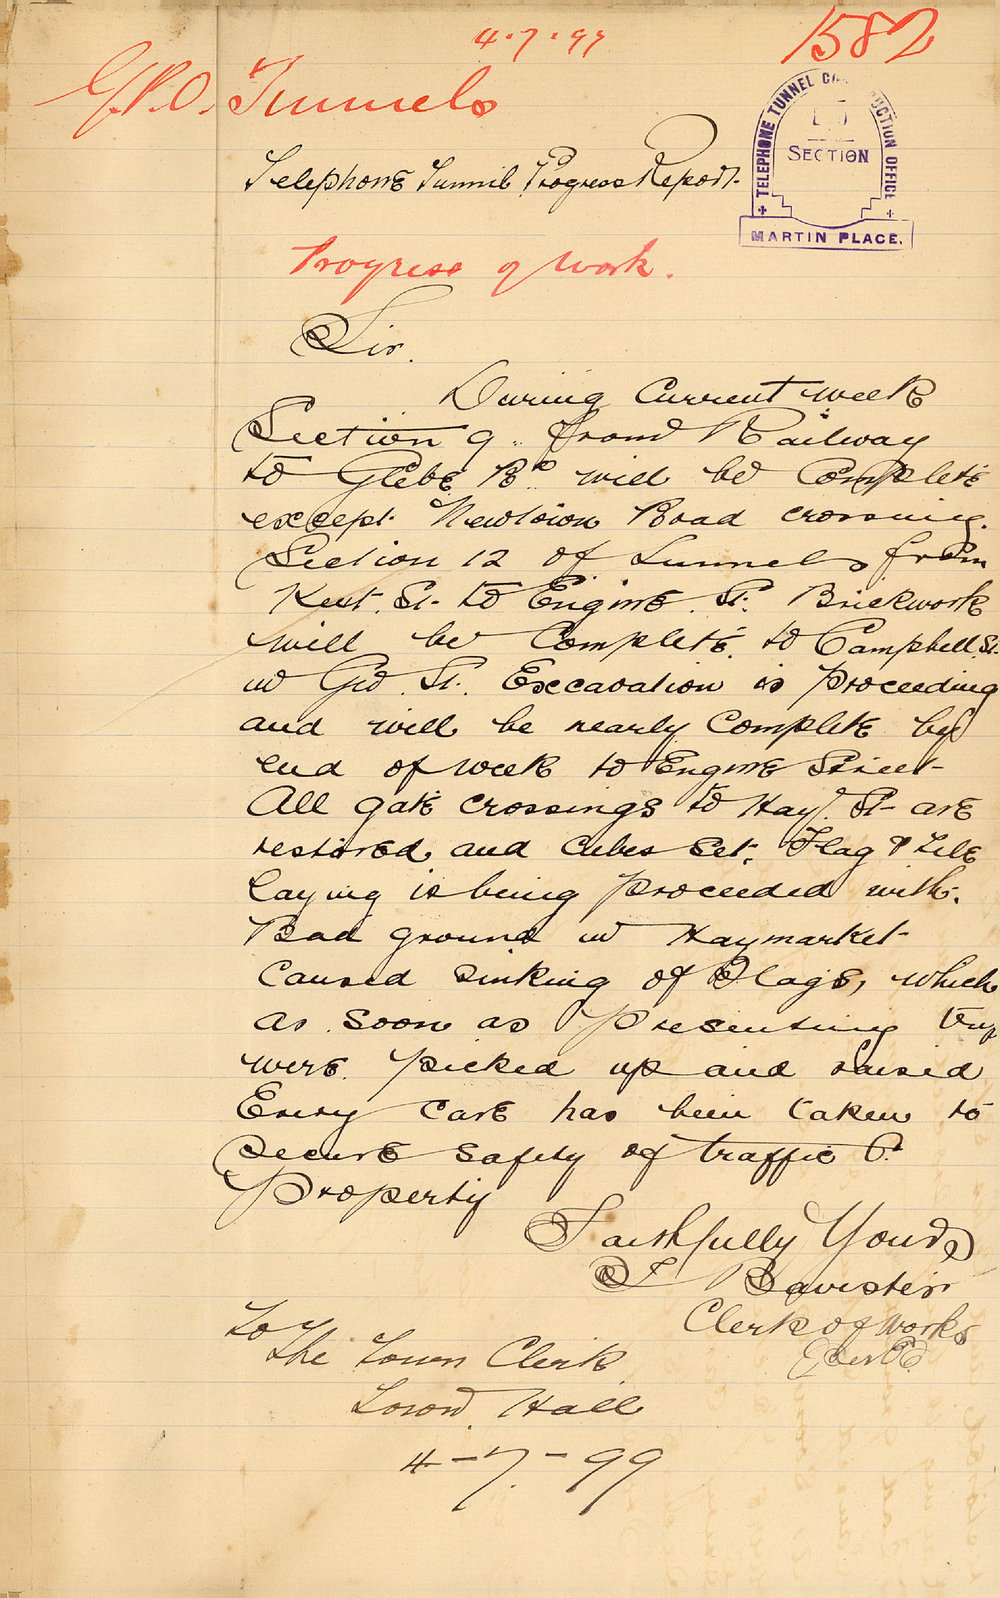 4.7.99
1582
G.P.O. Tunnels
TELEPHONE TUNNEL UCTION OFFICE
SECTION
MARTIN PLACE.
Telephone Tunnel Progress Report.
Progress of Work.
Sir.
During Current week
Section 9 from Railway
to Glebe Rd. will be Complete
except Newtown Road crossing.
Section 12 of Tunnels from
Kent. St. to Engine. St. Brickwork
will be Complete to Campbell. St.
in Geo. St. Excavation is proceeding
and will be nearly Complete by
end of week to Engine Street
All gate crossings to Hay. St. are
restored and Cubes Set. Flag & Tile
laying is being proceeded with.
Bad ground in Haymarket
Caused sinking of Flags, which
as soon as presenting they
were picked up and raised
Every Care has been taken to
secure safety of traffic &
Property
Faithfully Yours
Bavister
Clerk of Works
To
The Town Clerk
Town Hall
4-7-99